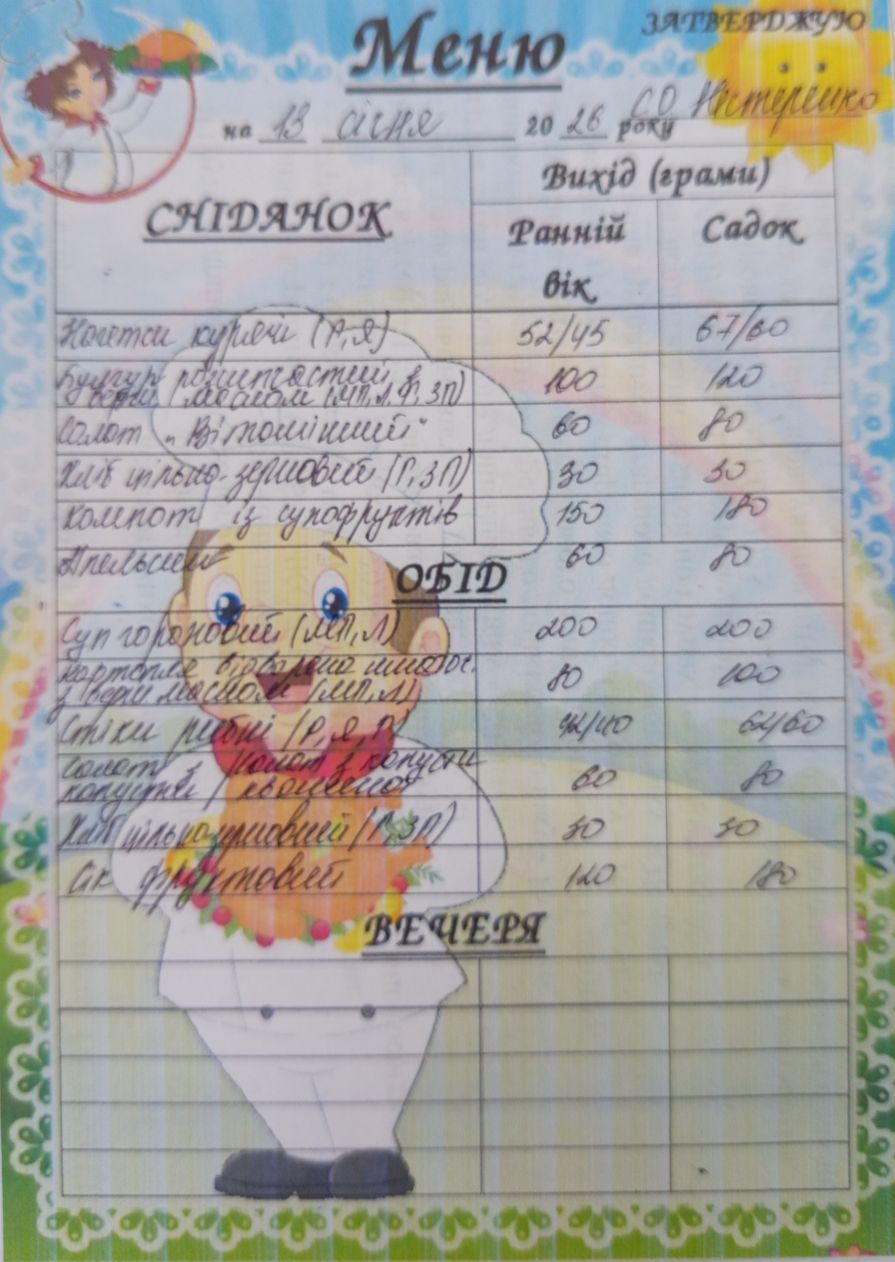 ЗАТВЕРДЖУЮ
Меню
СО Нестеренко
на 13 січня 20 26 року
СНІДАНОК Вихід (грами)
Ранній вік Садок
Нагетси курячі (Р,Я) 52/45 67/60
Булгур розсипчастий з 100 120
верш. маслом (МП,Л,Г,ЗП)
Салат „Вітамінний" 60 80
Хліб цільно-зерновий (Г,ЗП) 30 30
Компот із сухофруктів 150 180
Апельсин 60 80
ОБІД
Суп гороховий (МП,Л) 200 200
Картопля відварена шматоч. 80 100
з верш маслом (МП,Л)
Стіки рибні (Р,Я,Г) 42/40 62/60
Салат з Салат з капусти 60 80
капусти квашеної
Хліб цільнозерновий (Г,ЗП) 30 30
Сік фруктовий 120 180
ВЕЧЕРЯ